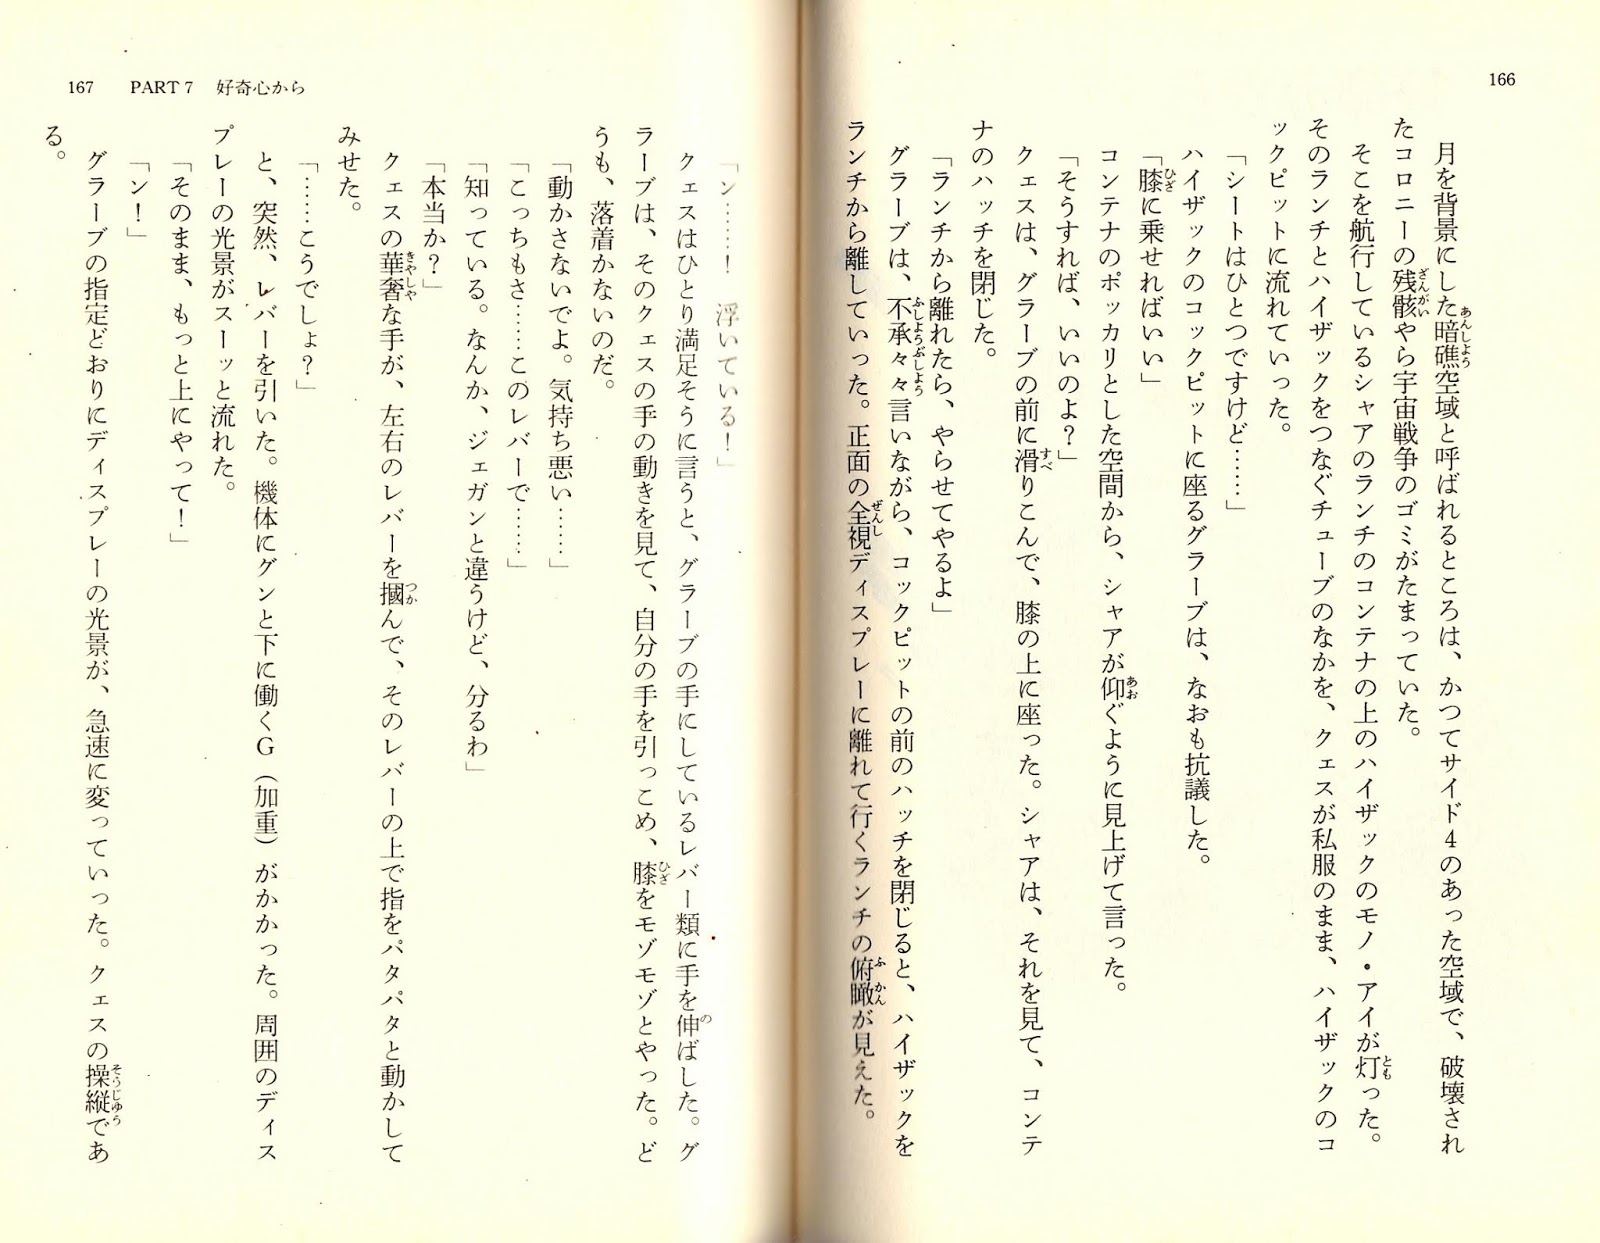 166
月を背景にした暗礁空域と呼ばれるところは、かつてサイド4のあった空域で、破壊され
たコロニーの残骸やら宇宙戦争のゴミがたまっていた。
そこを航行しているシャアのランチのコンテナの上のハイザックのモノ・アイが灯った。
そのランチとハイザックをつなぐチューブのなかを、クェスが私服のまま、ハイザックのコ
ックピットに流れていった。
「シートはひとつですけど……」
ハイザックのコックピットに座るグラーブは、なおも抗議した。
「膝に乗せればいい」
コンテナのポッカリとした空間から、シャアが仰ぐように見上げて言った。
「そうすれば、いいのよ？」
クェスは、グラーブの前に滑りこんで、膝の上に座った。シャアは、それを見て、コンテ
ナのハッチを閉じた。
「ランチから離れたら、やらせてやるよ」
グラーブは、不承々々言いながら、コックピットの前のハッチを閉じると、ハイザックを
ランチから離していった。正面の全視ディスプレーに離れて行くランチの俯瞰が見えた。
167 PART 7 好奇心から
「ン……！ 浮いている！」
クェスはひとり満足そうに言うと、グラーブの手にしているレバー類に手を伸ばした。グ
ラーブは、そのクェスの手の動きを見て、自分の手を引っこめ、膝をモゾモゾとやった。ど
うも、落着かないのだ。
「動かさないでよ。気持ち悪い……」
「こっちもさ……このレバーで……」
「知っている。なんか、ジェガンと違うけど、分るわ」
「本当か？」
クェスの華奢な手が、左右のレバーを摑んで、そのレバーの上で指をパタパタと動かして
みせた。
「……こうでしょ？」
と、突然、レバーを引いた。機体にグンと下に働くG（加重）がかかった。周囲のディス
プレーの光景がスーッと流れた。
「そのまま、もっと上にやって！」
「ン！」
グラーブの指定どおりにディスプレーの光景が、急速に変っていった。クェスの操縦であ
る。